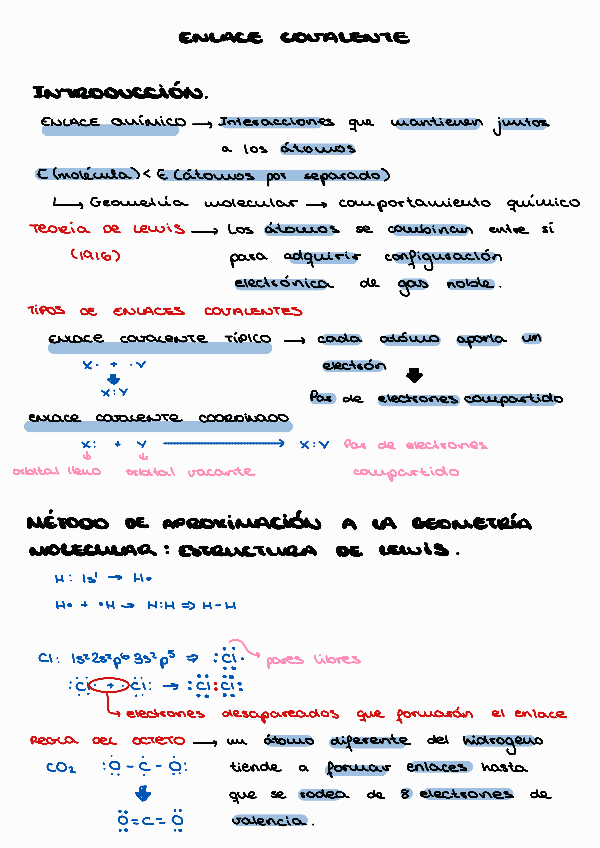 ENLACE COVALENTE
INTRODUCCIÓN.
ENLACE QUÍMICO → Interacciones que mantienen juntos
a los átomos
E (molécula) < E (átomos por separado)
↳ Geometría molecular → comportamiento químico
TEORÍA DE LEWIS → Los átomos se combinan entre sí
(1916) para adquirir configuración
electrónica de gas noble.
TIPOS DE ENLACES COVALENTES
ENLACE COVALENTE TÍPICO → cada átomo aporta un
X· + ·Y electrón
X:Y
Par de electrones compartido
ENLACE COVALENTE COORDINADO
X: + Y → X:Y Par de electrones
orbital lleno orbital vacante compartido
MÉTODO DE APROXIMACIÓN A LA GEOMETRÍA
MOLECULAR: ESTRUCTURA DE LEWIS.
H: 1s¹ → H•
H• + •H → H:H ⇒ H-H
Cl: 1s²2s²p⁶3s²p⁵ ⇒ :Cl· pares libres
:Cl· + ·Cl: → :Cl:Cl:
electrones desapareados que formarán el enlace
REGLA DEL OCTETO → un átomo diferente del hidrógeno
CO₂ :O-C-O: tiende a formar enlaces hasta
que se rodea de 8 electrones de
O=C=O valencia.